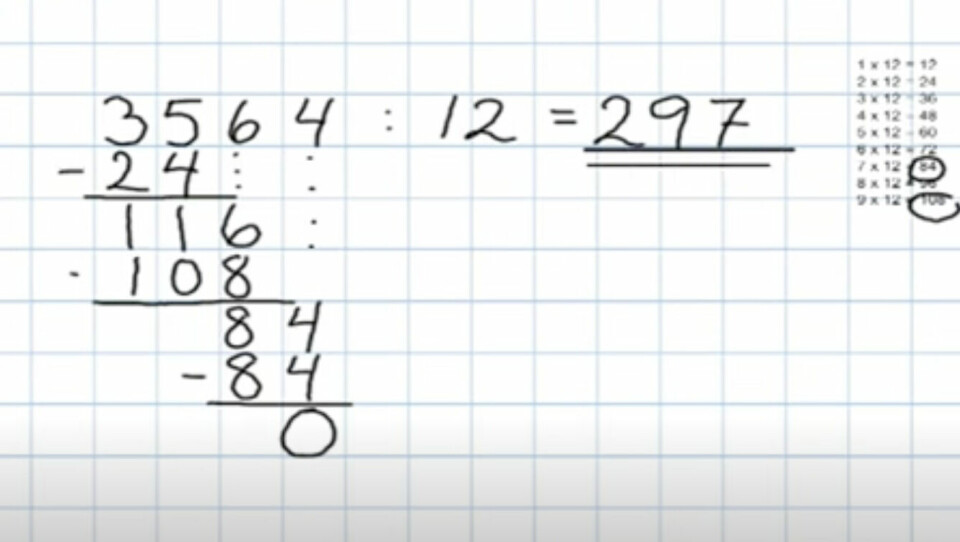 3564 : 12 = 297
- 24
116
- 108
84
- 84
0
1 x 12 = 12
2 x 12 = 24
3 x 12 = 36
4 x 12 = 48
5 x 12 = 60
6 x 12 = 72
7 x 12 = 84
8 x 12 = 96
9 x 12 = 108